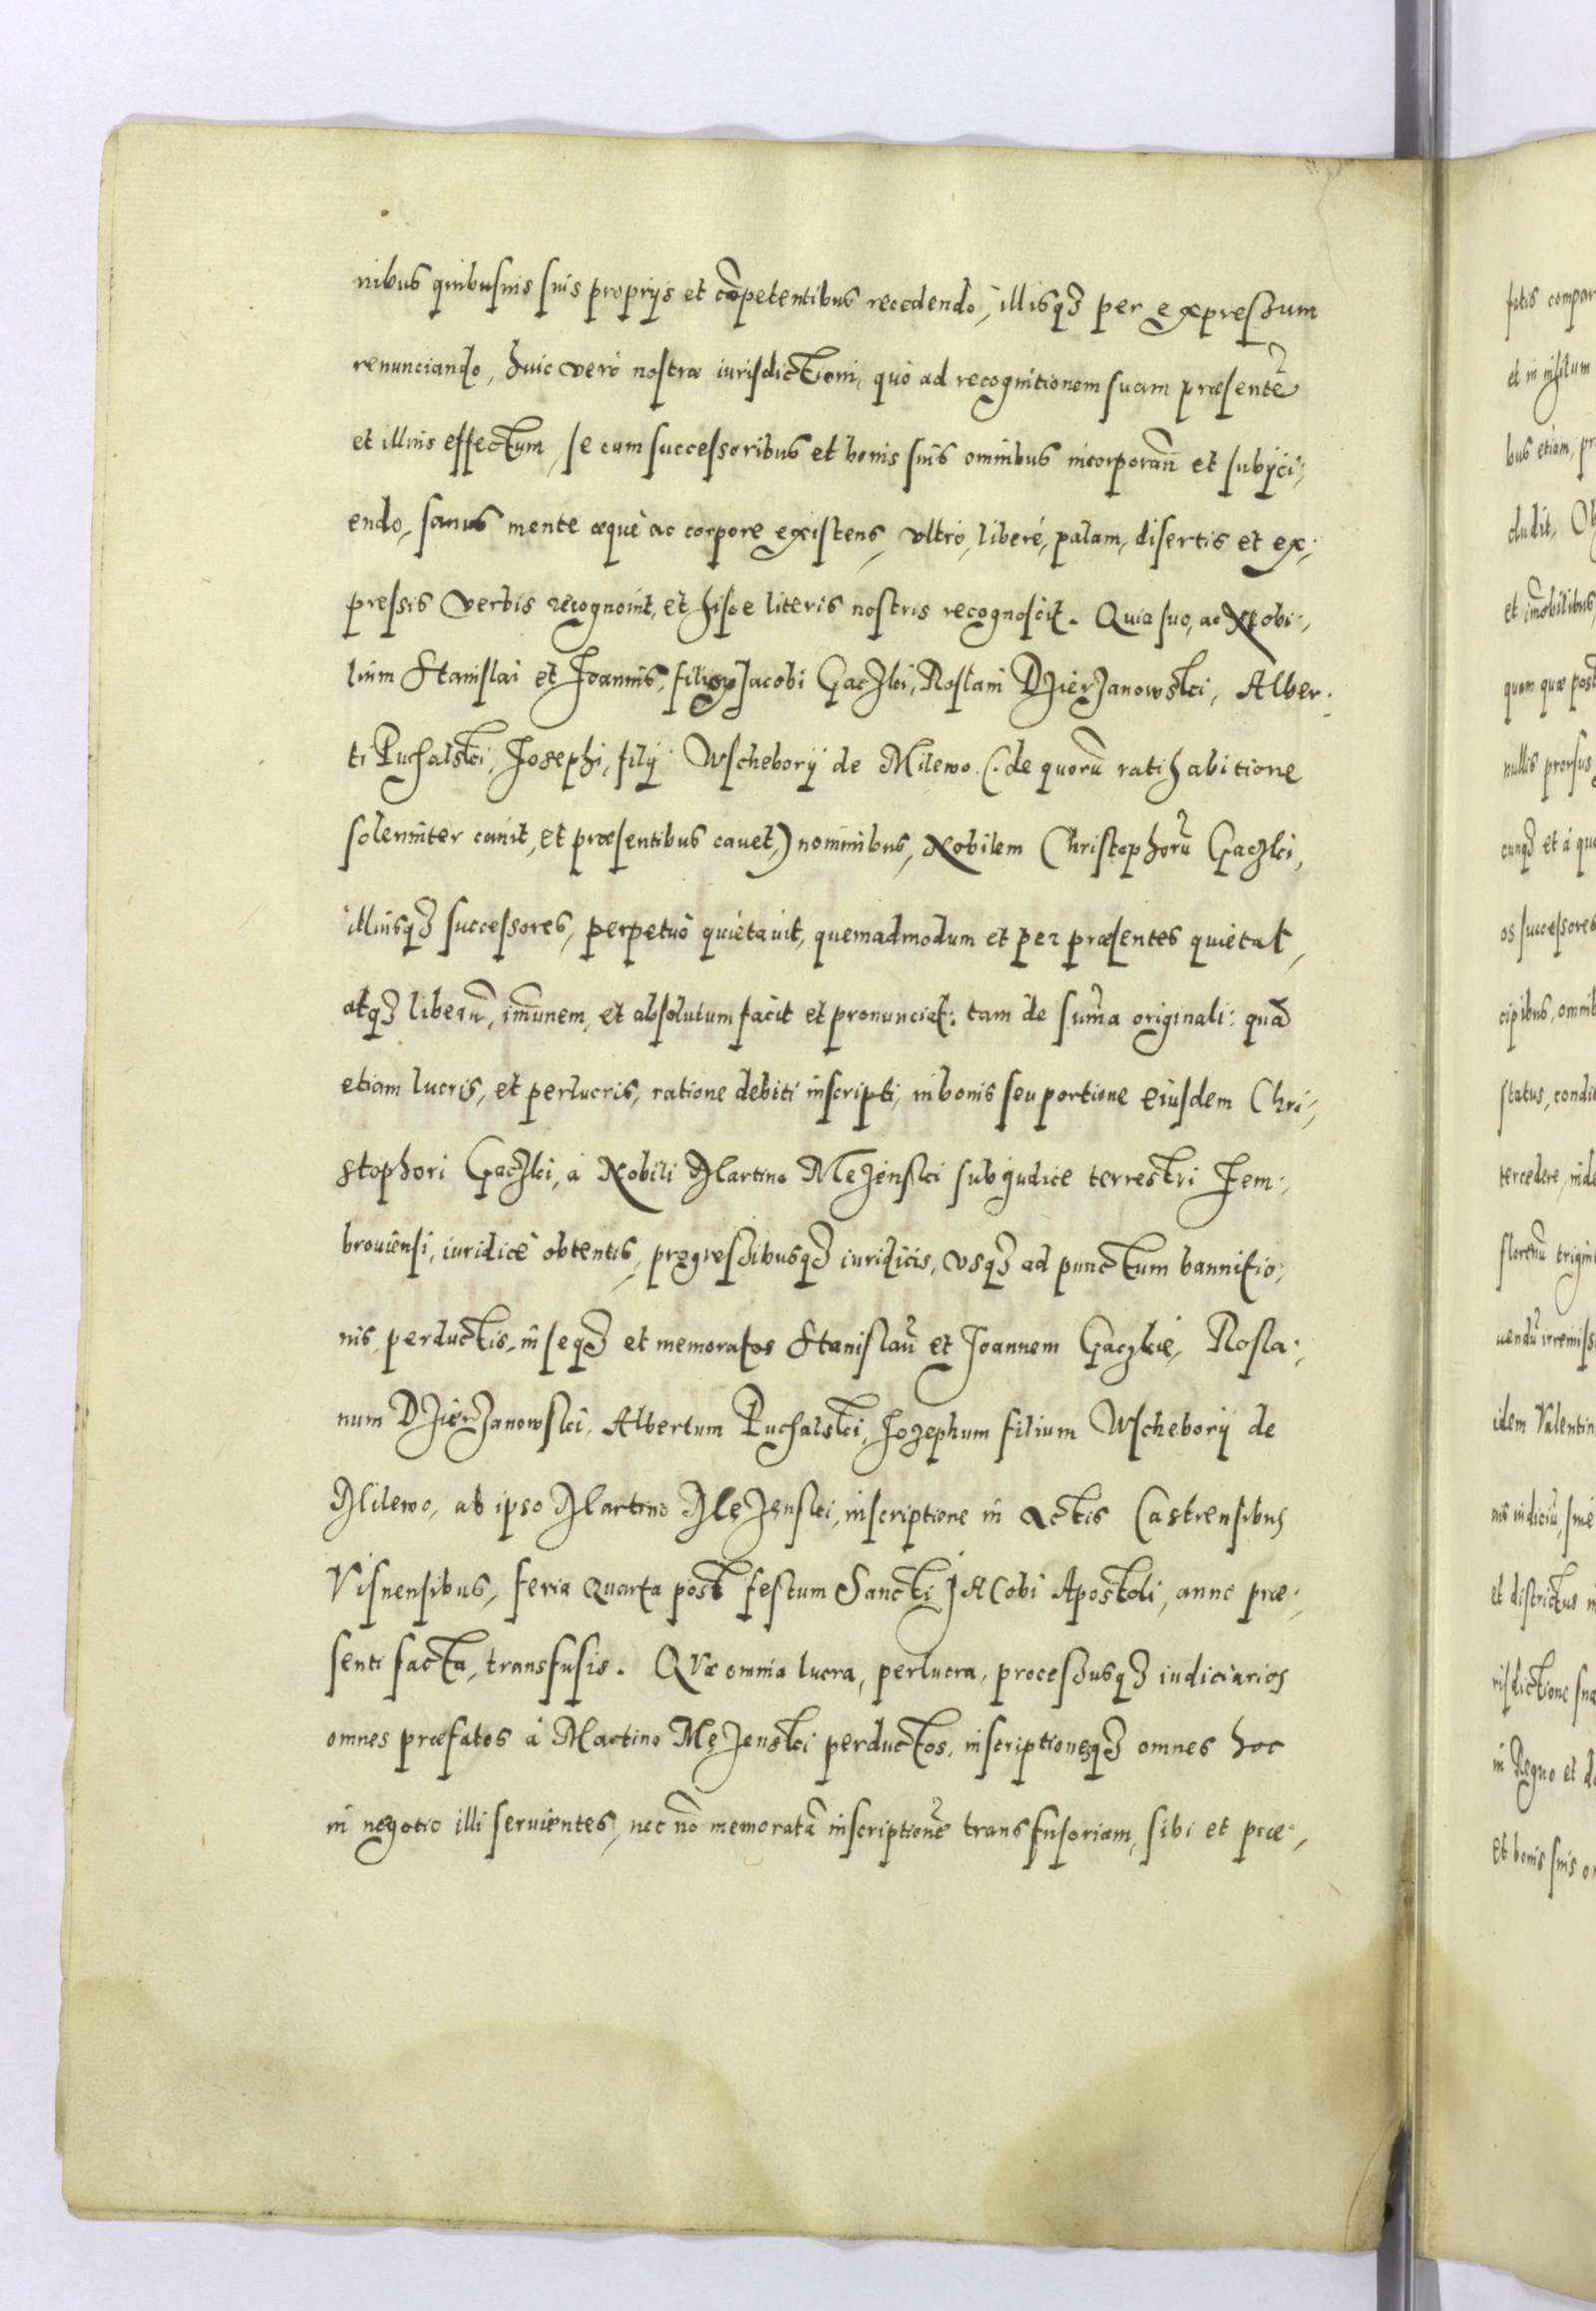 nibus quibusuis suis proprijs et cõpetentibus recedendo, illisqз per expressum
renunciando, huic verò nostræ iurisdictioni, quò ad recognitionem suam præsentẽ
et illius effectum, se cum successoribus et bonis suis omnibus incorporan̄ et subijci:
endo, sanus mente æquè ac corpore existens, vltrò, liberè, palam, disertis et ex:
pressis verbis recognouit, et hisce literis nostris recognoscit. Quia suo, ac Nobi:
lium Stanislai et Joannis, filior Jacobi Gaczki, Roslani Dzierzanowski, Alber:
ti Puchalski, Josephi, filij Wscheborij de Milewo (: de quorũ ratihabitione
solenniter cauit, et præsentibus cauet,) nominibus, Nobilem Christophorũ Gaczki,
illiusqз successores, perpetuò quietauit, quemadmodum et per præsentes quietat,
atqз liberũ, im̃unem, et absolutum facit et pronunciat: tam de sum̃a originali: quã
etiam lucris, et perlucris, ratione debiti inscripti, in bonis seu portione eiusdem Chri:
stophori Gaczki, à Nobili Martino Mężenski subiudice terrestri Zem:
brouiensi, iuridicè obtentis, progressibusqз iuridicis, vsqз ad punctum bannitio:
nis perductis, in seqз et memoratos Stanislaũ et Joannem Gaczkie, Rosla:
num Dzierzanowski, Albertum Puchalski, Jozephum filium Wscheborij de
Milewo, ab ipso Martino Mężenski, inscriptione in Actis Castrensibus
Visnensibus, feria quarta post festum Sancti JACobi Apostoli, anno præ:
senti facta, transfusis. QVæ omnia lucra, perlucra, processusqз iudiciarios
omnes præfatos à Martino Mężenski perductos, inscriptionesqз omnes hoc
in negotio illi seruientes, nec nõ memoratã inscriptionẽ transfusoriam, sibi et præ: